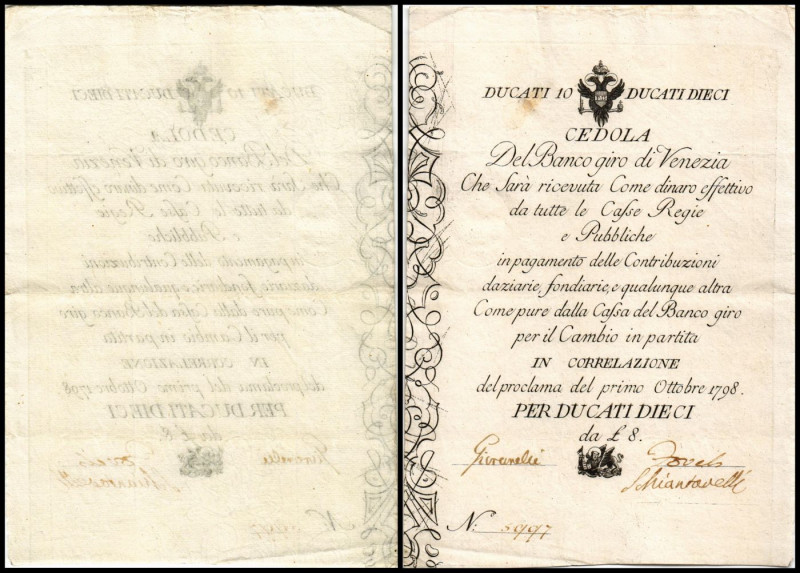 DUCATI 10 DUCATI DIECI
CEDOLA
Del Banco giro di Venezia
Che Sarà ricevuta Come dinaro effettivo
da tutte le Casse Regie
e Pubbliche
in pagamento delle Contribuzioni
daziarie, fondiarie, e qualunque altra
Come pure dalla Cassa del Banco giro
per il Cambio in partita
IN CORRELAZIONE
del proclama del primo Ottobre 1798.
PER DUCATI DIECI
da £ 8.
Giovanelli
Schiantarelli
N. 5997